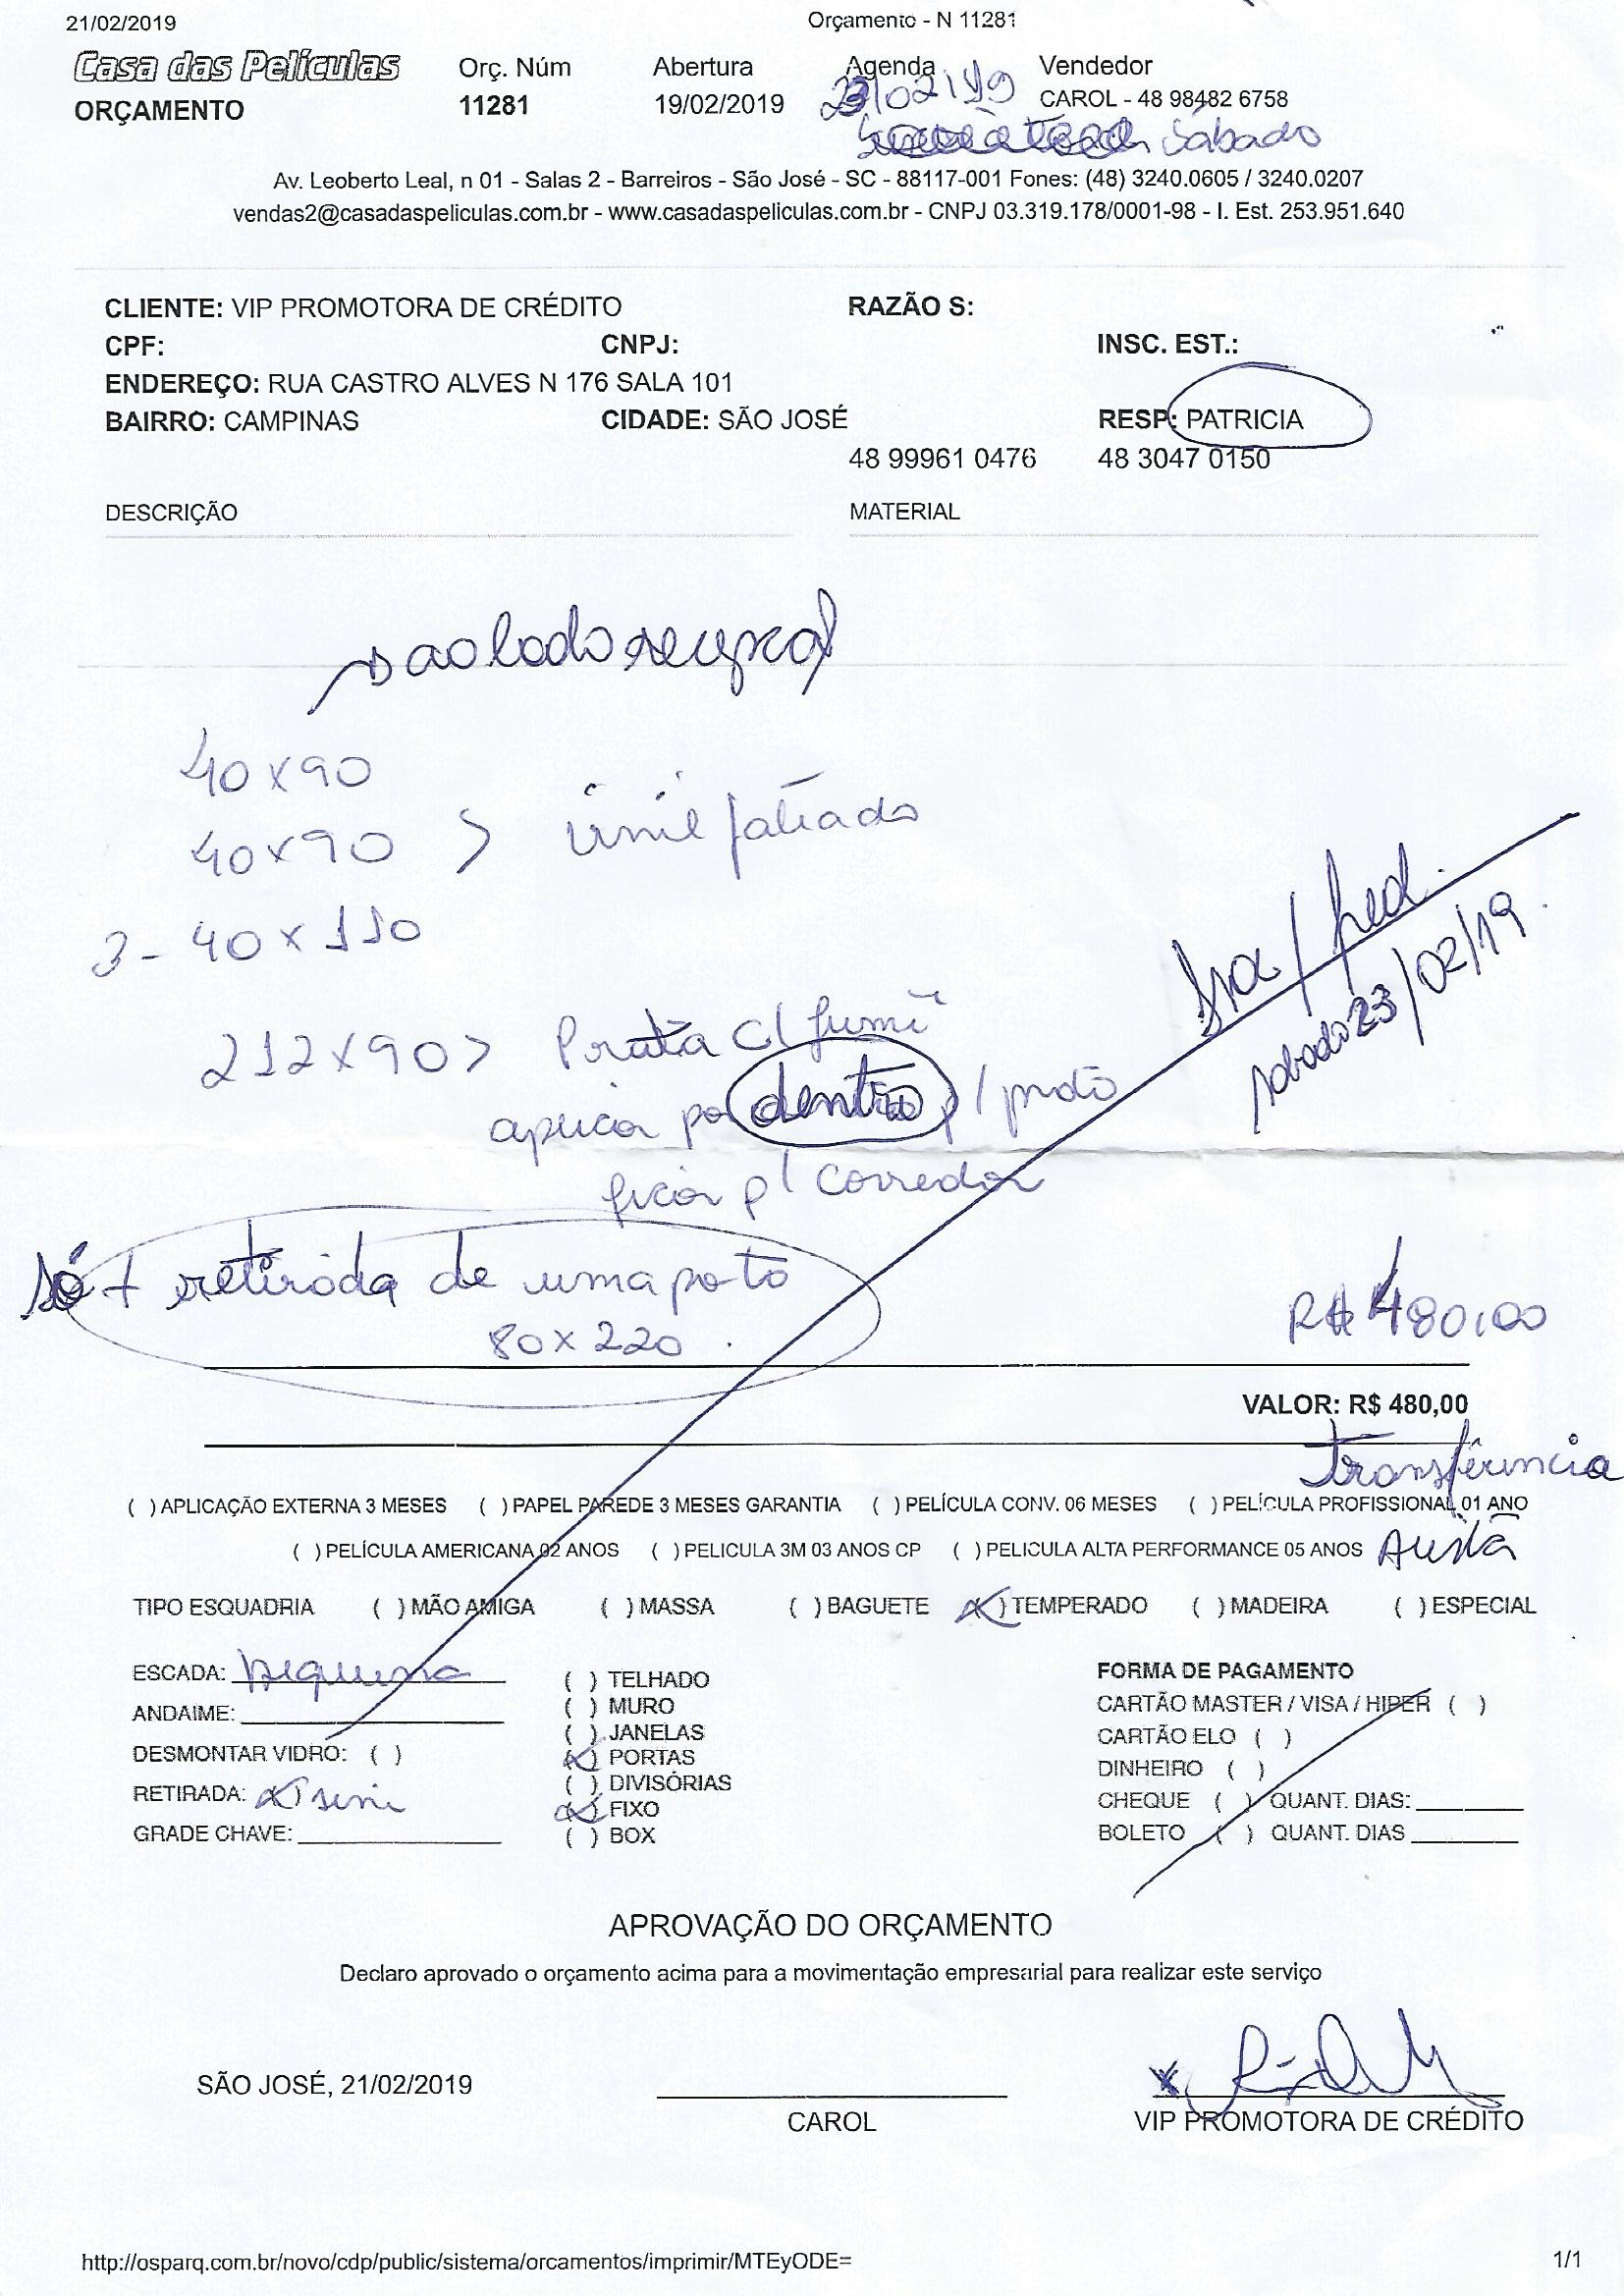 21/02/2019 Orçamento - N 11281
Casa das Películas Orç. Núm Abertura Agenda Vendedor
ORÇAMENTO 11281 19/02/2019 23/02/19 CAROL - 48 98482 6758
Sábado
Av. Leoberto Leal, n 01 - Salas 2 - Barreiros - São José - SC - 88117-001 Fones: (48) 3240.0605 / 3240.0207
vendas2@casadaspeliculas.com.br - www.casadaspeliculas.com.br - CNPJ 03.319.178/0001-98 - I. Est. 253.951.640
CLIENTE: VIP PROMOTORA DE CRÉDITO RAZÃO S:
CPF: CNPJ: INSC. EST.:
ENDEREÇO: RUA CASTRO ALVES N 176 SALA 101
BAIRRO: CAMPINAS CIDADE: SÃO JOSÉ RESP: PATRICIA
48 99961 0476 48 3047 0150
DESCRIÇÃO MATERIAL
40x90
40x90 >
3- 40x110
sabado 23/02/19.
212x90> Prata c/ fumê
aplicar por dentro p/ prata
ficar p/ corredor
só + retirada de uma porta
80x220 R$ 480,00
VALOR: R$ 480,00
Transferencia
( ) APLICAÇÃO EXTERNA 3 MESES ( ) PAPEL PAREDE 3 MESES GARANTIA ( ) PELÍCULA CONV. 06 MESES ( ) PELÍCULA PROFISSIONAL 01 ANO
( ) PELÍCULA AMERICANA 02 ANOS ( ) PELICULA 3M 03 ANOS CP ( ) PELICULA ALTA PERFORMANCE 05 ANOS
TIPO ESQUADRIA ( ) MÃO AMIGA ( ) MASSA ( ) BAGUETE (x) TEMPERADO ( ) MADEIRA ( ) ESPECIAL
ESCADA: pequena ( ) TELHADO FORMA DE PAGAMENTO
( ) MURO CARTÃO MASTER / VISA / HIPER ( )
ANDAIME: ( ) JANELAS CARTÃO ELO ( )
DESMONTAR VIDRO: ( ) (x) PORTAS DINHEIRO ( )
RETIRADA: (x) sim ( ) DIVISÓRIAS CHEQUE ( ) QUANT. DIAS:
(x) FIXO
GRADE CHAVE: ( ) BOX BOLETO ( ) QUANT. DIAS
APROVAÇÃO DO ORÇAMENTO
Declaro aprovado o orçamento acima para a movimentação empresarial para realizar este serviço
SÃO JOSÉ, 21/02/2019
CAROL VIP PROMOTORA DE CRÉDITO
http://osparq.com.br/novo/cdp/public/sistema/orcamentos/imprimir/MTEyODE= 1/1